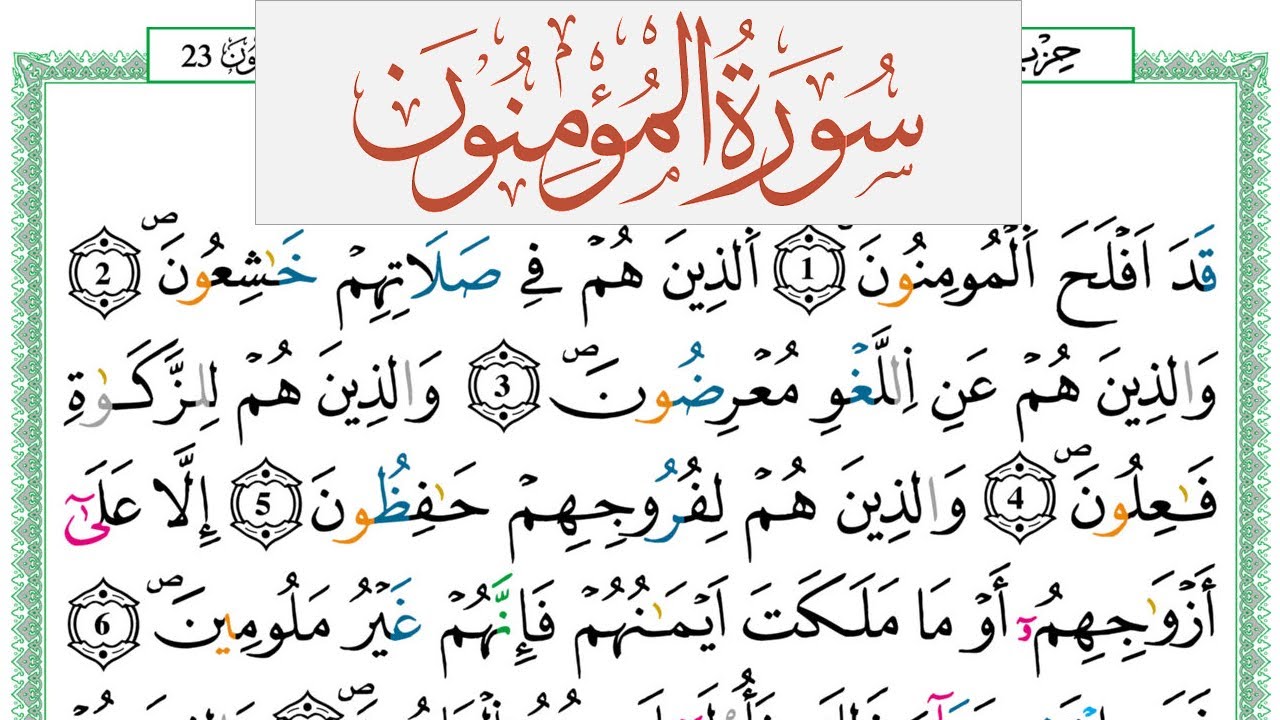 حِزْب
ـونَ 23
سُورَةُ الْمُؤْمِنُونَ
قَدَ اَفْلَحَ اَلْمُومِنُونَ 1 اَلذِينَ هُمْ فِے صَلَاتِهِمْ خَٰشِعُونَۖ 2
وَالذِينَ هُمْ عَنِ اِللَّغْوِ مُعْرِضُونَۖ 3 وَالذِينَ هُمْ لِلزَّكَوٰةِ
فَٰعِلُونَۖ 4 وَالذِينَ هُمْ لِفُرُوجِهِمْ حَٰفِظُونَ 5 إِلَّا عَلَىٰٓ
أَزْوَٰجِهِمُۥٓ أَوْ مَا مَلَكَتَ اَيْمَٰنُهُمْ فَإِنَّهُمْ غَيْرُ مَلُومِينَۖ 6